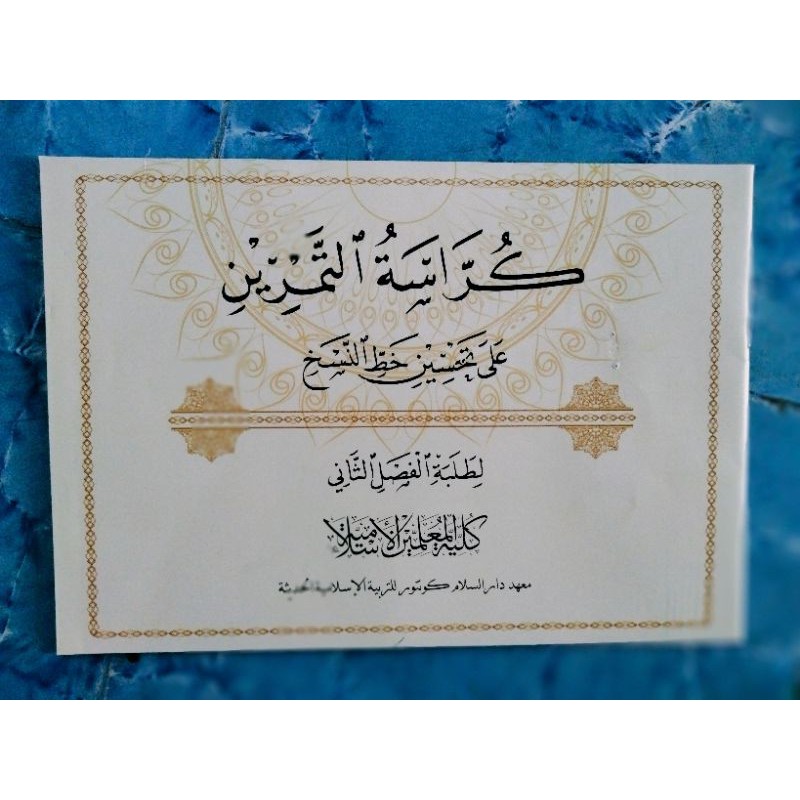 كُرَّاسَةُ ٱلتَّمْرِيْنِ
عَلَى تَحْسِيْنِ خَطِّ النَّسْخِ
لِطَلَبَةِ ٱلْفَصْلِ الثَّانِي
كُلِّيَّةُ الْمُعَلِّمِيْنَ الْأِسْلَامِيَّة
معهد دار السلام كونتور للتربية الإسلامية الحديثة